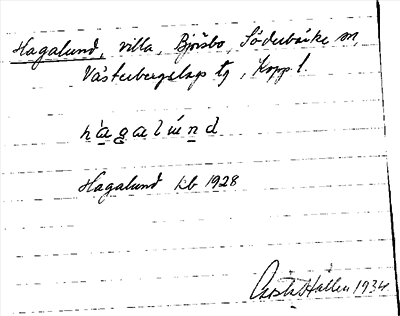 Hagalund, villa, Björsbo, Söderbärke sn,
Västerbergslags tg, Kopp. l.
hàgalúnd
Hagalund kb 1928
Gösta Hallén 1934